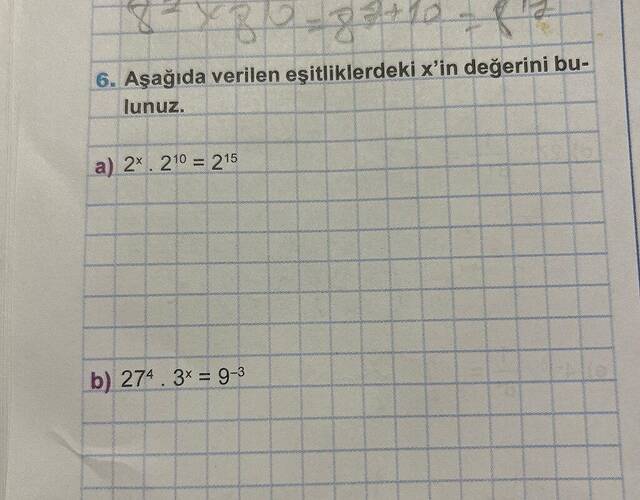 8⁷ × 8¹⁰ = 8⁷⁺¹⁰ = 8¹⁷
6. Aşağıda verilen eşitliklerdeki x'in değerini bu-
lunuz.
a) 2ˣ . 2¹⁰ = 2¹⁵
b) 27⁴ . 3ˣ = 9⁻³